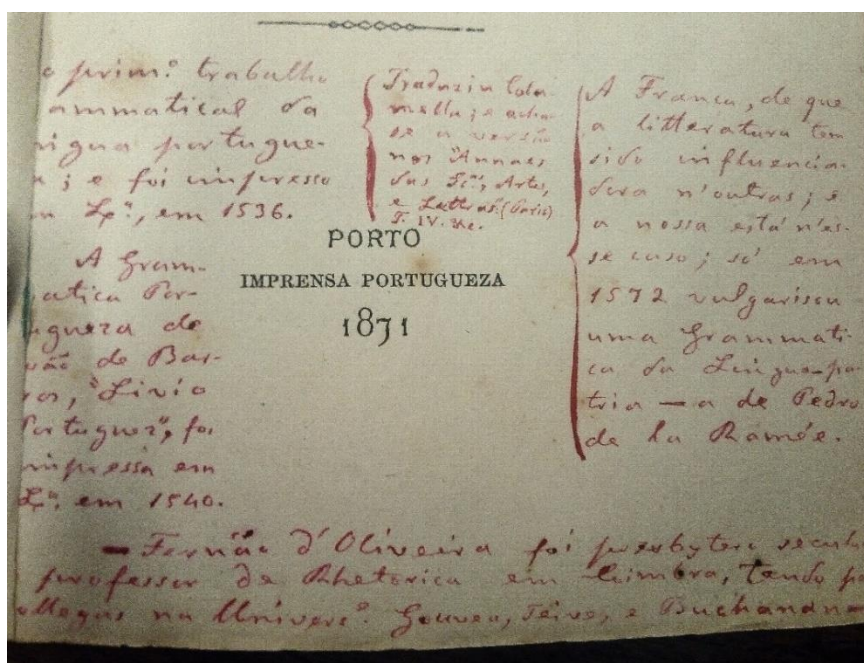 o prim.º trabalho
ammatical da
ngua portugue-
a; e foi impresso
em Lx.ª, em 1536.
A Gram-
atica Por-
ugueza de
oão de Bar-
ros, "Livio
Portuguez", foi
impressa em
Lx.ª, em 1540.
Traduziu Colu-
mella; e acha-
se a versão
nos "Annaes
das Sc.as, Artes,
e Lettras" (Paris)
T. IV. &c.
A França, de que
a litteratura tem
sido influencia-
dora n'outras; e
a nossa está n'es-
se caso; só em
1572 vulgarisou
uma Grammati-
ca da Lingua-pa-
tria — a de Pedro
de la Ramée.
PORTO
IMPRENSA PORTUGUEZA
1871
— Fernão d'Oliveira foi presbytero secul
professor de Rhetorica em Coimbra, tendo po
ollegas na Univers.e Gouvea, Teive, e Buchanan